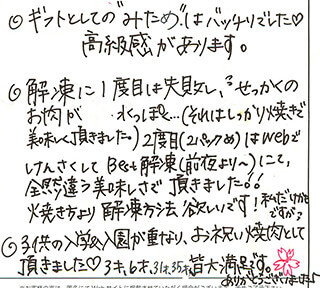 ◎ ギフトとしての"みため"はバッチリでした♡
高級感があります。
◎ 解凍に1度目は失敗し、せっかくの
お肉が 水っぽく…(それはしっかり焼きで
美味しく頂きました。) 2度目(2パックめ)はwebで
けんさくしてBest解凍(前夜より〜)にて、
全然違う美味しさで頂きました!!
焼き方より解凍方法欲しいです! 私だけかも
ですが?
◎ 子供の入学&入園が重なり、お祝い焼肉として
頂きました♡ 3才、6才、31才、35才、皆大満足です。
ありがとうございました♪